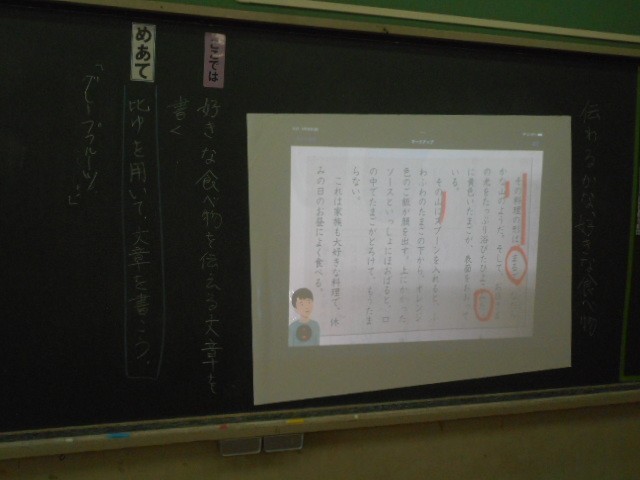 伝わるかな、好きな食べ物
その料理の形は
そして、
に黄色いたまごが、
いる。
その山にスプーンを入れると、
わふわのたまごの下から、オレンジ
色のご飯が顔を出す。上にかかった
ソースといっしょにほおばると、口
の中でたまごがとろけて、もうたま
らない。
これは家族も大好きな料理で、休
みの日のお昼によく食べる。
ここでは
好きな食べ物を伝える文章を
書く
めあて
比ゆを用いて、文章を書こう。